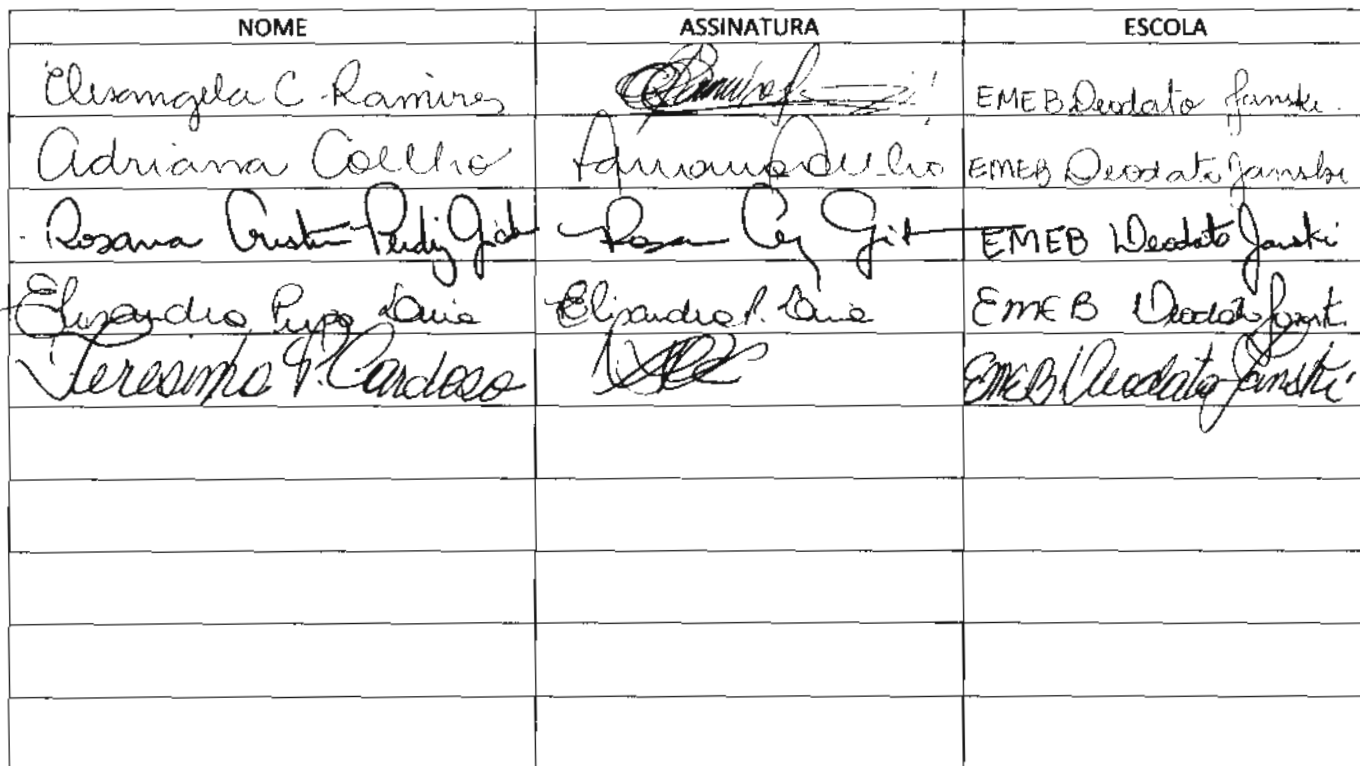 NOME ASSINATURA ESCOLA
Elisangela C. Ramires EMEB Deodato Janski.
Adriana Coelho Adriana Coelho EMEB Deodato Janski
Rosana EMEB Deodato Janski
Elisandra Elisandra P. EMEB Deodato Janski
Teresinha P. Cardoso EMEB Deodato Janski